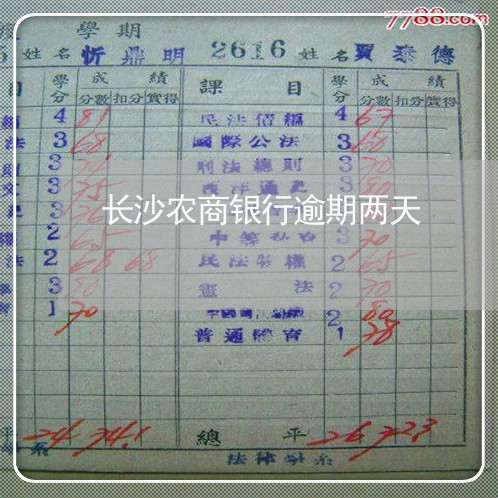 7788.com
學期
姓名 忻鼎明 2616 姓名 賈泰德
目 學分 成績 課目 學分 成績
分數 扣分 實得 分數 扣分 實得
4 81 民法債編 4 67
法 3 68 國際公法 3 60
3 刑法總則 3 70
3 75 西洋通史 3 80
長沙农商银行逾期两天
2 65 3 70
法 2 68 68 民法物權 2 65
3 80 憲法 2 70
1 70 2 80
普通體育 1 78
平 24 74.1 總平 26 72.3
系 法律學系